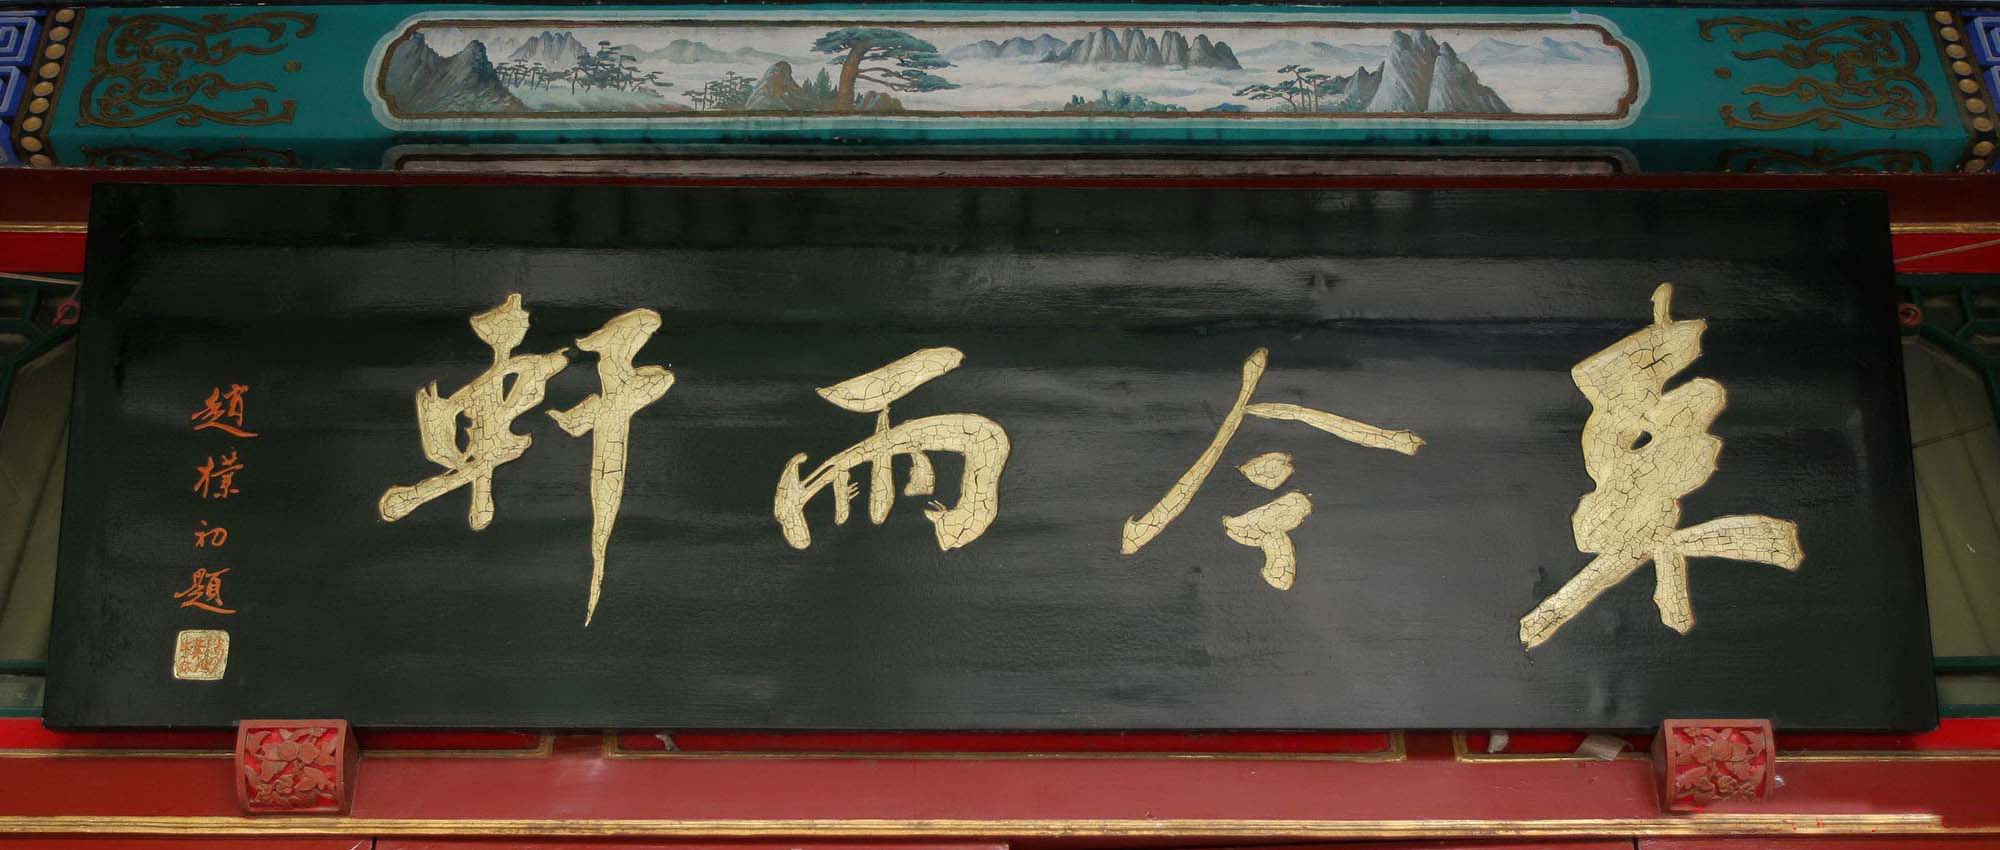 來今雨軒
趙樸初題